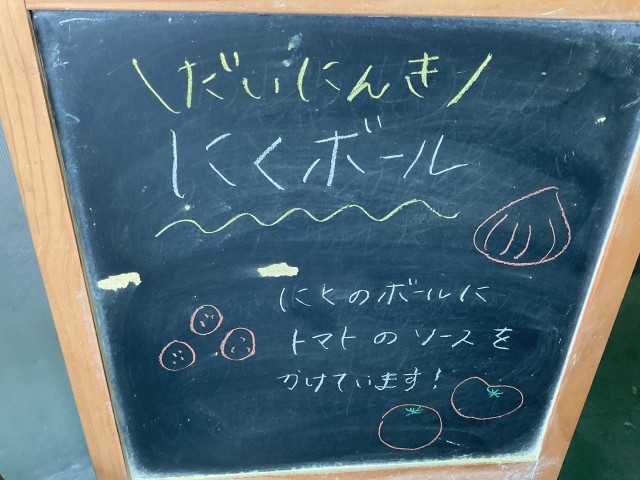 \だいにんき/
にくボール
にくのボールに
トマトのソースを
かけています!